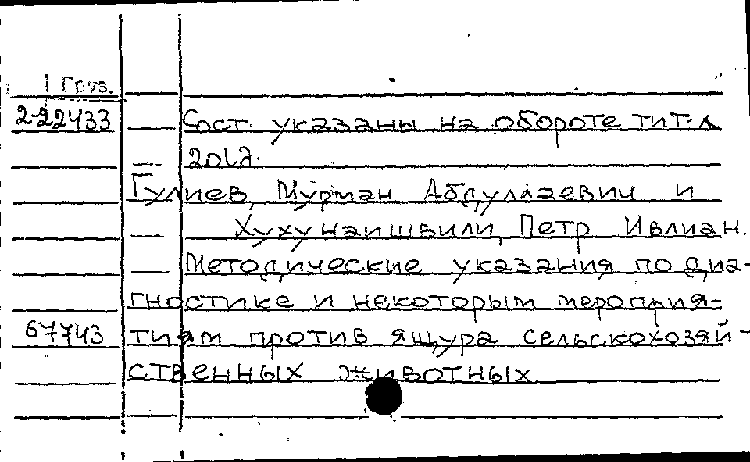 Груз.
2-22433 Сост. указаны на обороте тит. л
Гулиев, Мурман Абдуллаевич и
Хухунаишвили, Петр Ивлиан.
Методические указания по диа-
гностике и некоторым мероприя-
67743 тиям против ящура сельскохозяй-
ственных животных